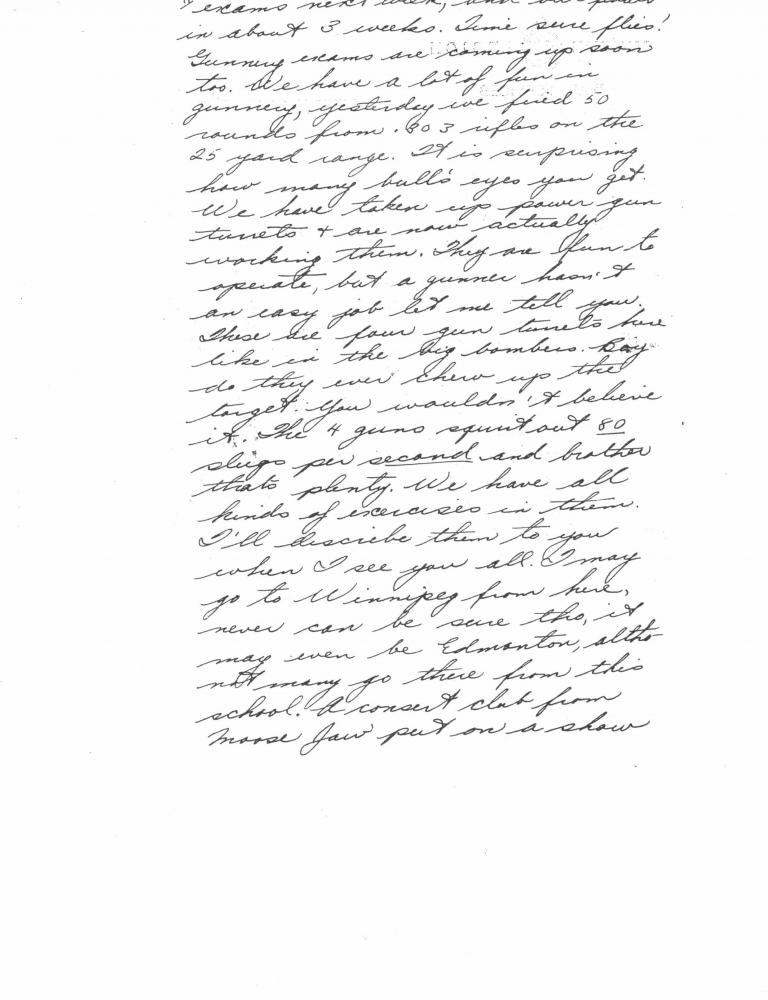 exams next week, and
in about 3 weeks. Time sure flies!
Gunnery exams are coming up soon
too. We have a lot of fun in
gunnery, yesterday we fired 50
rounds from .303 rifles on the
25 yard range. It is surprising
how many bull's eyes you get.
We have taken up power gun
turrets + are now actually
working them. They are fun to
operate, but a gunner hasn't
an easy job let me tell you.
These are four gun turrets here
like in the big bombers. Boy
do they ever chew up the
target. You wouldn't believe
it. The 4 guns squirt out 80
slugs per second and brother
thats plenty. We have all
kinds of exercises in them.
I'll describe them to you
when I see you all. I may
go to Winnipeg from here,
never can be sure tho, it
may even be Edmonton, altho
not many go there from this
school. A consert club from
Moose Jaw put on a show